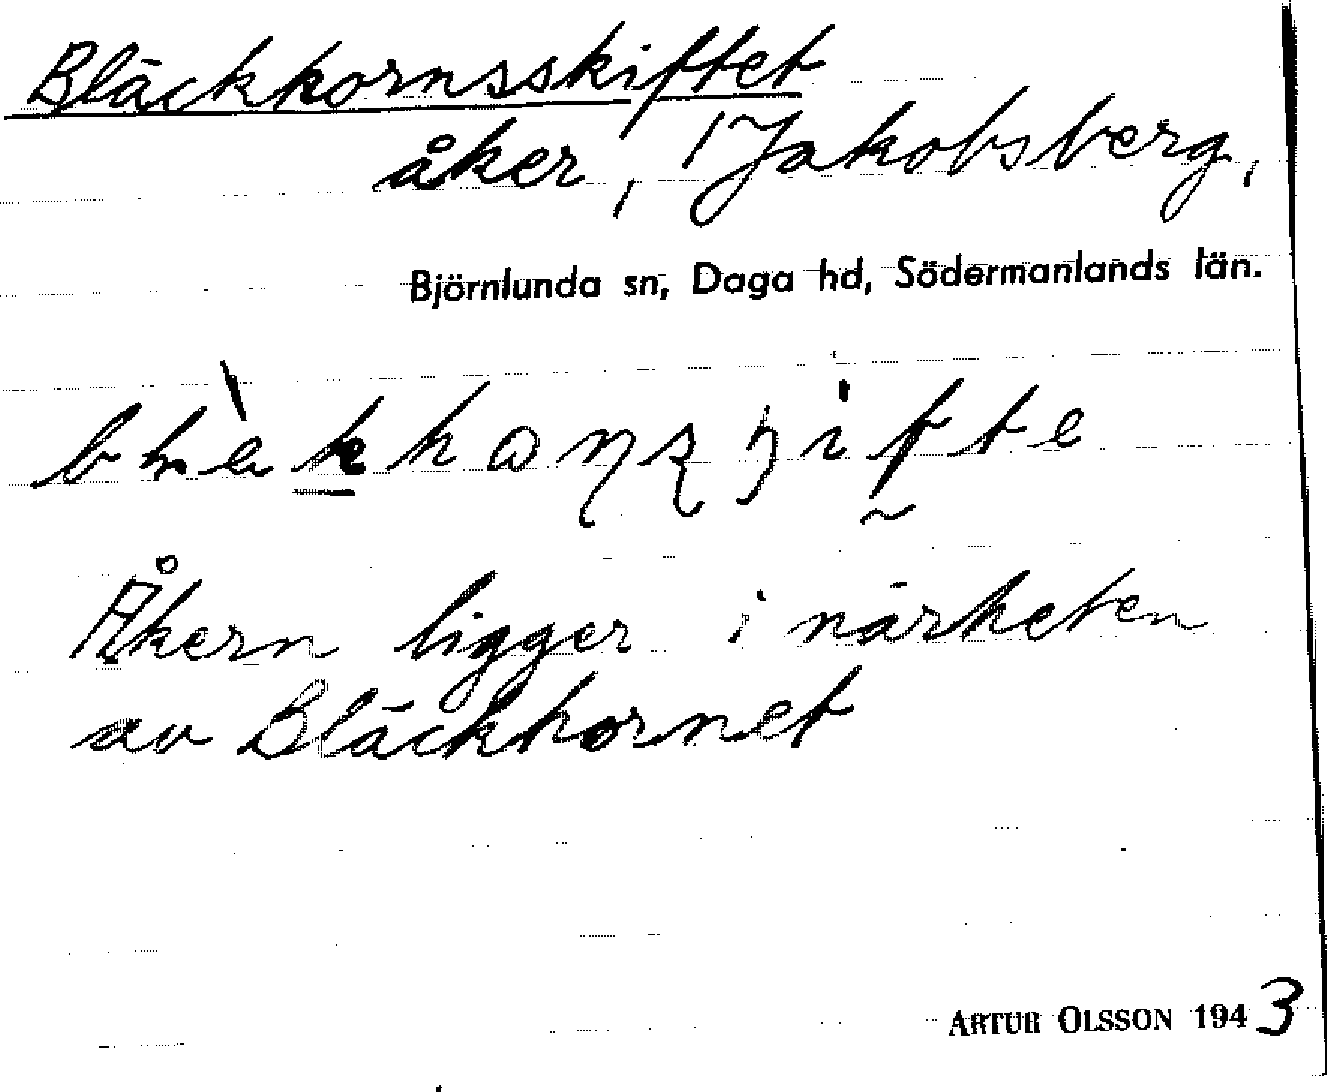 Bläckhornsskiftet
åker, Jakobsberg,
Björnlunda sn, Daga hd, Södermanlands län.
Åkern ligger i närheten
av Bläckhornet
ARTUR OLSSON 1943